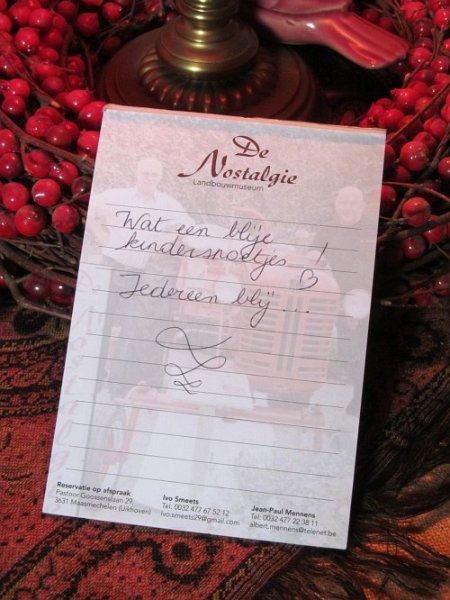 De
Nostalgie
Landbouwmuseum
Wat een blije
kindersnoetjes !
Iedereen blij ...
Reservatie op afspraak
Pastoor Goossenslaan 29
3631 Maasmechelen (Uikhoven)
Ivo Smeets
Tel. 0032 477 67 52 12
ivo.smeets29@gmail.com
Jean-Paul Mennens
Tel. 0032 477 22 38 11
albert.mennens@telenet.be